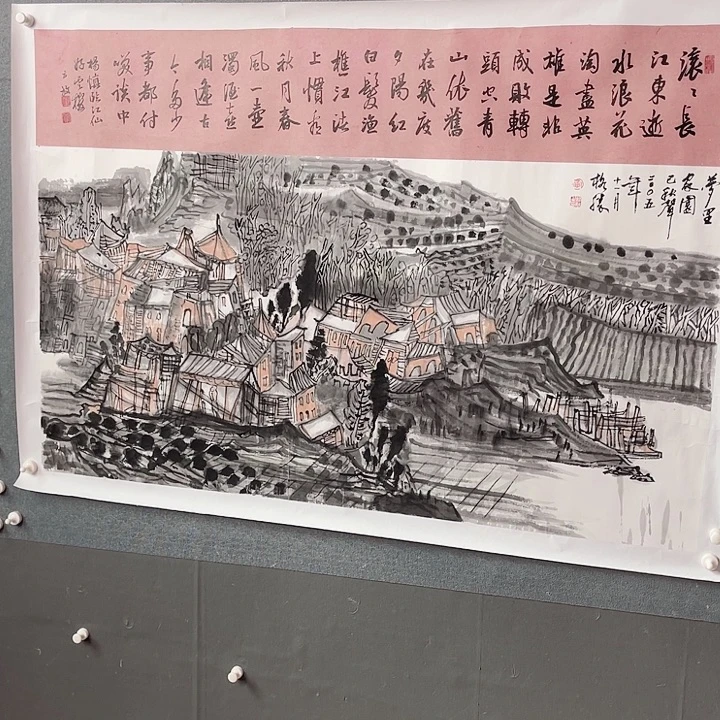 滚〻長
江東逝
水浪花
淘盡英
雄是非
成敗轉
頭空青
山依舊
在幾度
夕陽紅
白髮漁
樵江渚
上慣看
秋月春
風一壺
濁酒喜
相逢古
今多少
事都付
笑談中
楊慎臨江仙
夢里
家園
已秋聲
二〇〇五
年
十一月